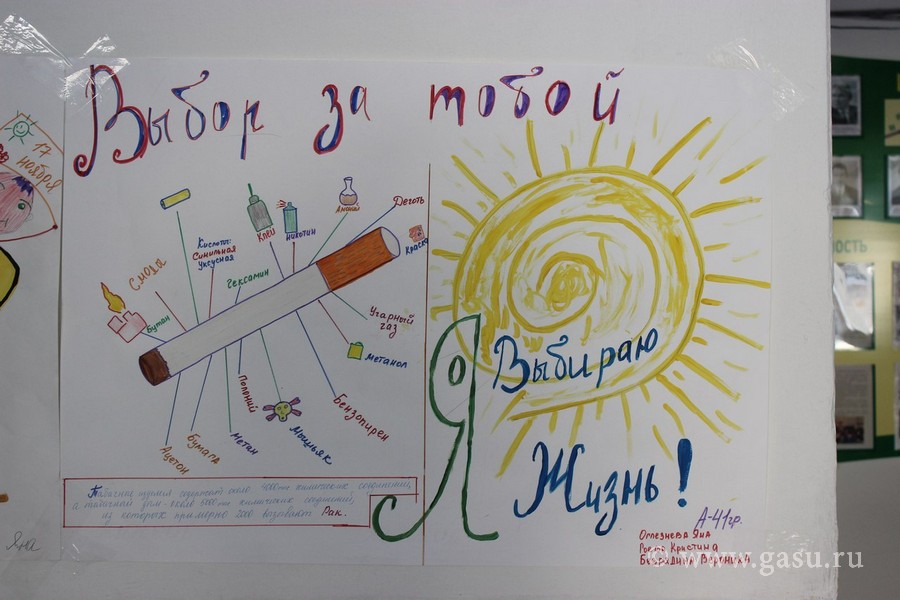 Выбор за тобой
17
ноября
Деготь
Краска
Аммиак
Никотин
Клей
Кислоты:
Синильная
Уксусная
Гексамин
Смола
Бутан
Угарный
газ
Метанол
Бензопирен
Мышьяк
Полоний
Метан
Бумага
Ацетон
Табачная
содержит около 4000
химических соединений,
а табачном дым - около 5000
химических соединений,
из которых примерно
вызывают Рак.
Я
Выбираю
Жизнь!
А-41гр.
Яна
Кристина
Вероника
Яна
ность
© www.gasu.ru